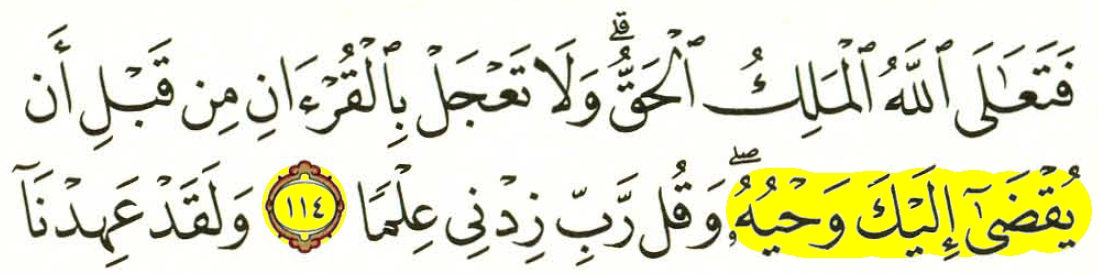 فَتَعَٰلَى ٱللَّهُ ٱلْمَلِكُ ٱلْحَقُّ ۗ وَلَا تَعْجَلْ بِٱلْقُرْءَانِ مِن قَبْلِ أَن
يُقْضَىٰٓ إِلَيْكَ وَحْيُهُۥ ۖ وَقُل رَّبِّ زِدْنِى عِلْمًا ١١٤ وَلَقَدْ عَهِدْنَآ